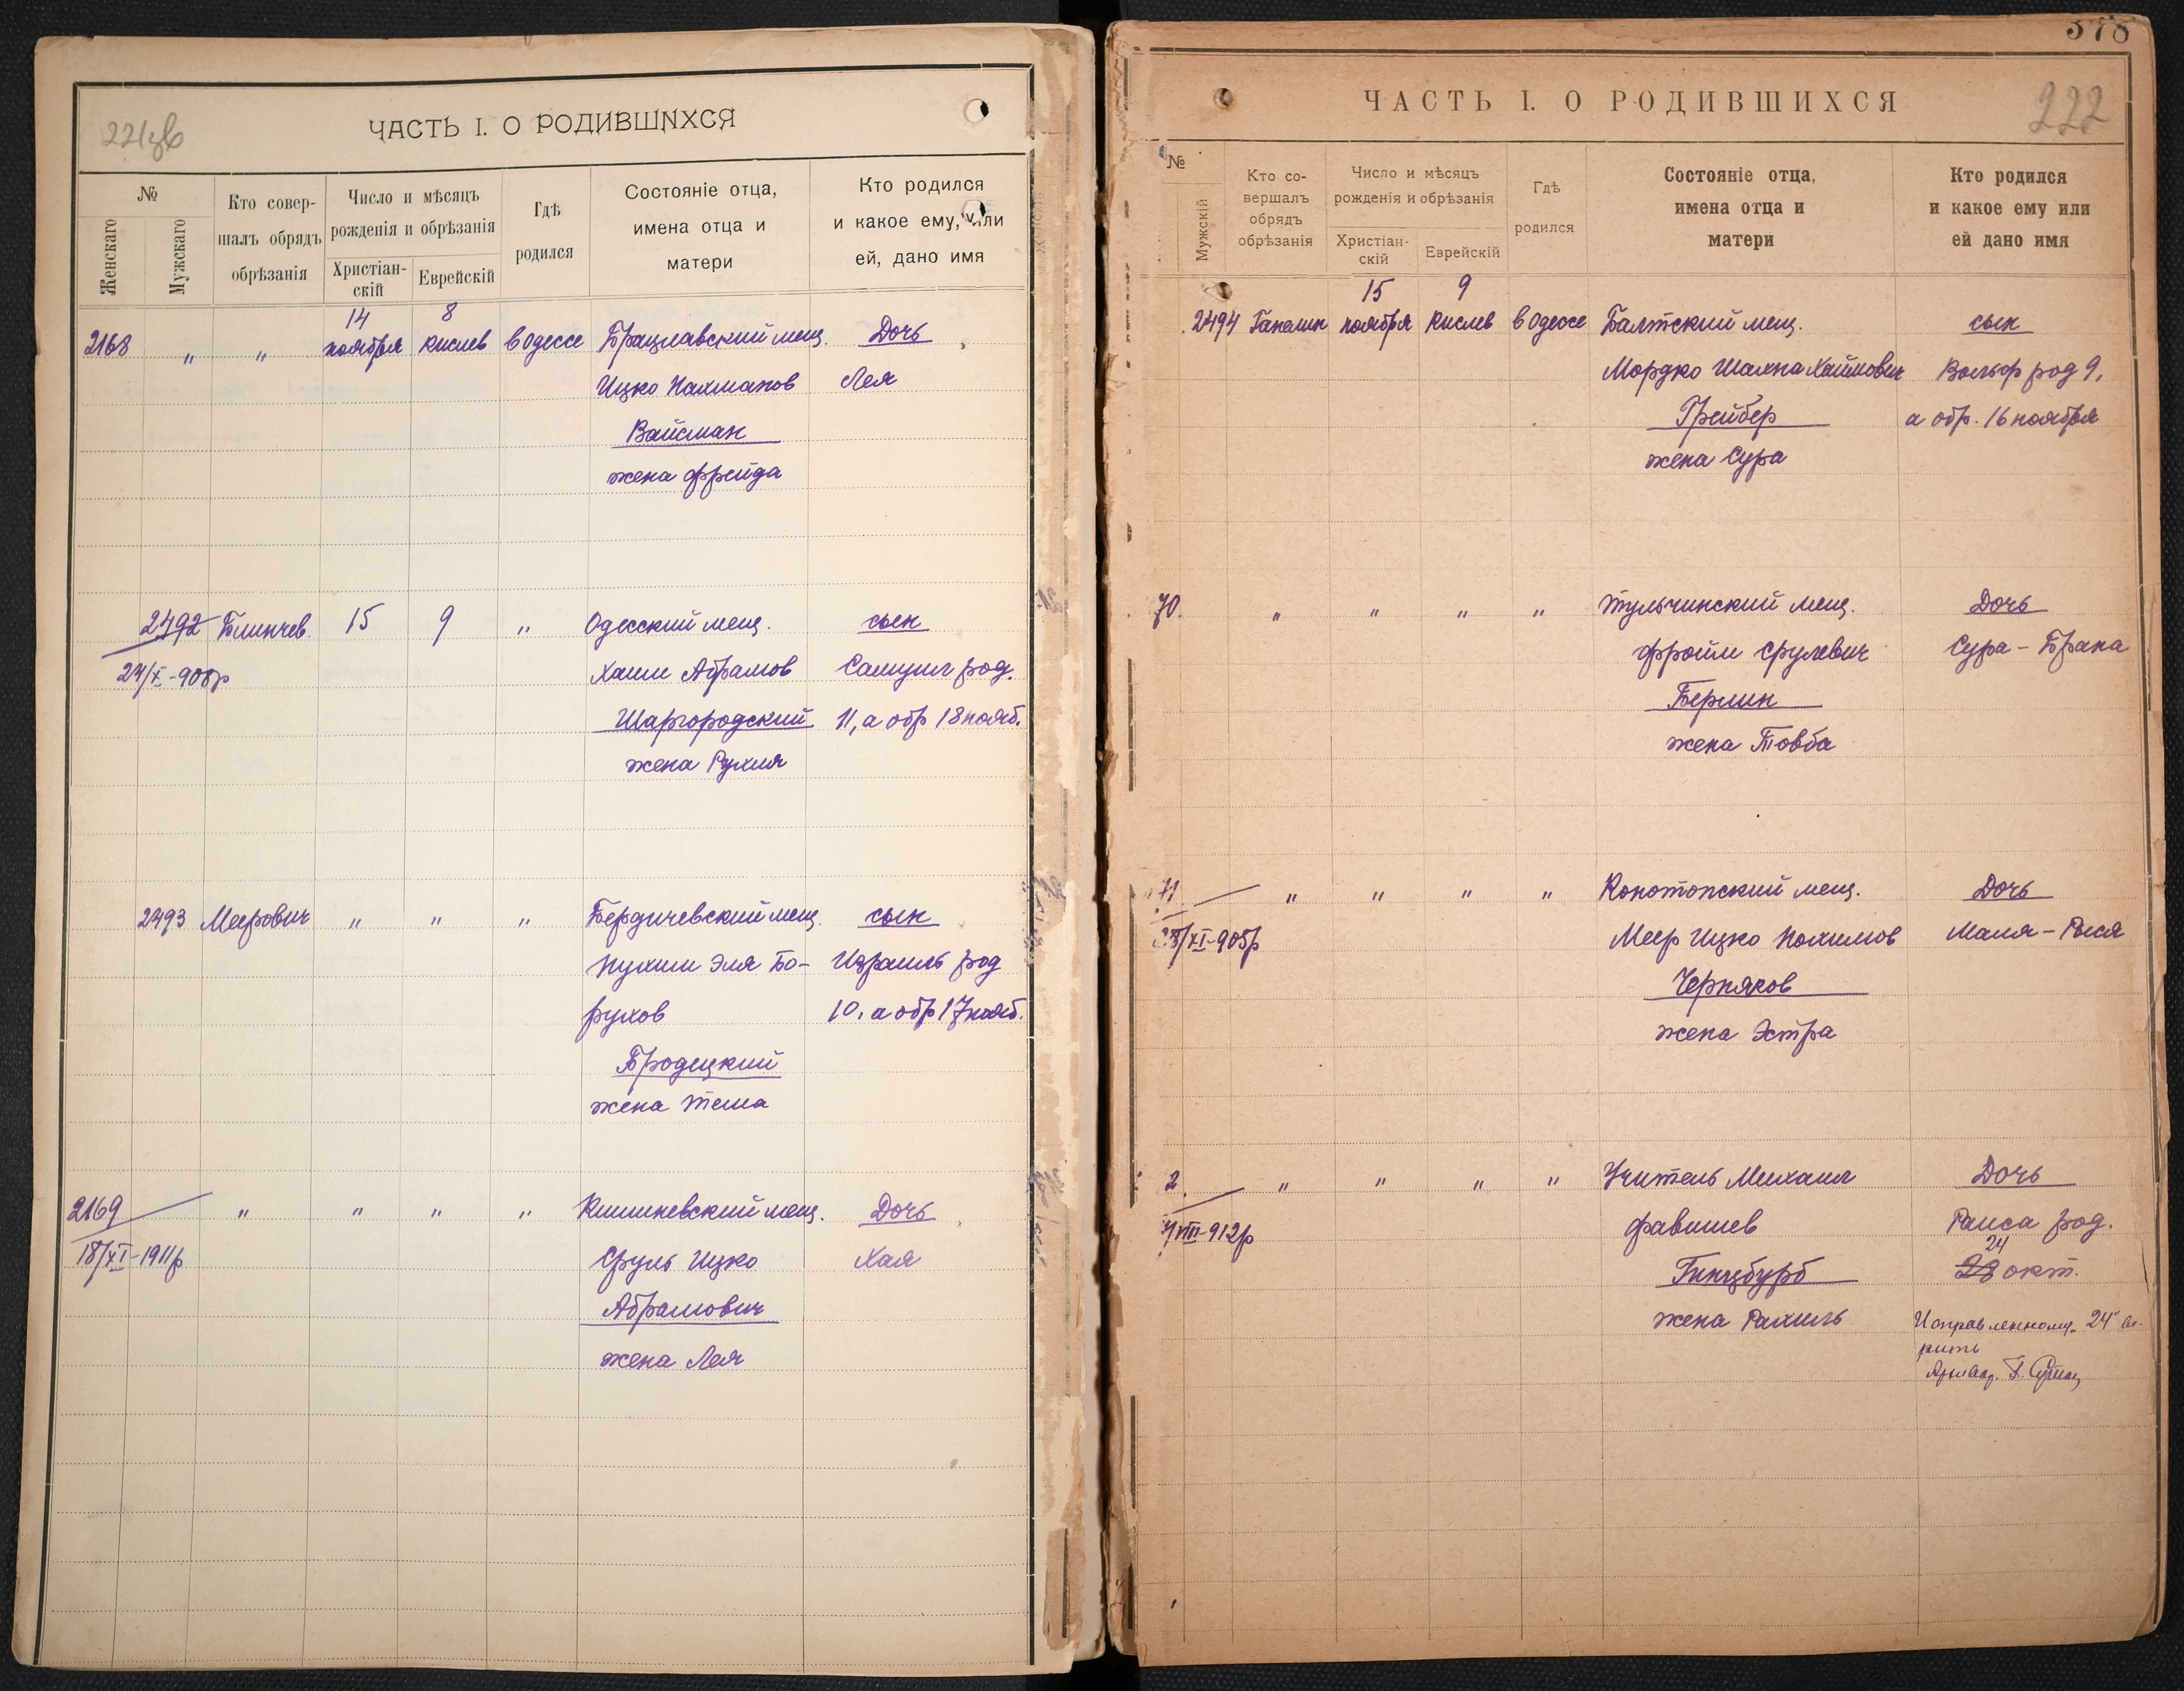 221 зв
ЧАСТЬ I. О РОДИВШИХСЯ
№
Женскаго
Мужскаго
Кто совершалъ обрядъ обрѣзанія
Число и мѣсяцъ рожденія и обрѣзанія
Христіанскій
Еврейскій
Гдѣ родился
Состояніе отца, имена отца и матери
Кто родился и какое ему, или ей, дано имя
14 8
2168 " " ноября Кислев в Одессе Брацлавский мещ. Дочь
Ицко Нахманов Лея
Вайсман
жена Фрейда
2492 Блинчев. 15 9 " Одесский мещ. сын
24/X-908р Хаим Абрамов Самуил род.
Шаргородский 11, а обр 18 нояб.
жена Рухля
2493 Меерович " " " Бердичевский мещ. сын
Нухим Эля Бо- Израиль род
рухов 10, а обр 17 нояб.
Бродецкий
жена Тема
2169 " " " " Кишиневский мещ. Дочь
18/XI-1911р Сруль Ицко Хая
Абрамович
жена Лея
378
222
ЧАСТЬ I. О РОДИВШИХСЯ
№
Мужскій
Кто совершалъ обрядъ обрѣзанія
Число и мѣсяцъ рожденія и обрѣзанія
Христіанскій
Еврейскій
Гдѣ родился
Состояніе отца, имена отца и матери
Кто родился и какое ему или ей дано имя
15 9
2494 Ганелин ноября Кислев в Одессе Балтский мещ. сын
Мордко Шахна Хаймович Вольф род 9,
Грейбер а обр. 16 ноября
жена Сура
70. " " " " Тульчинский мещ. Дочь
Фроим Срулевич Сура - Брана
Берлин
жена Товба
71 " " " " Конотопский мещ. Дочь
28/XI-905р Меер Ицко Нохимов Маля - Рыся
Черняков
жена Эстра
2. " " " " Учитель Михаил Дочь
7/VIII-912р Фавишев Раиса род.
24
Гинзбург 28 окт.
жена Рахиль Исправленному "24" ве-
рить